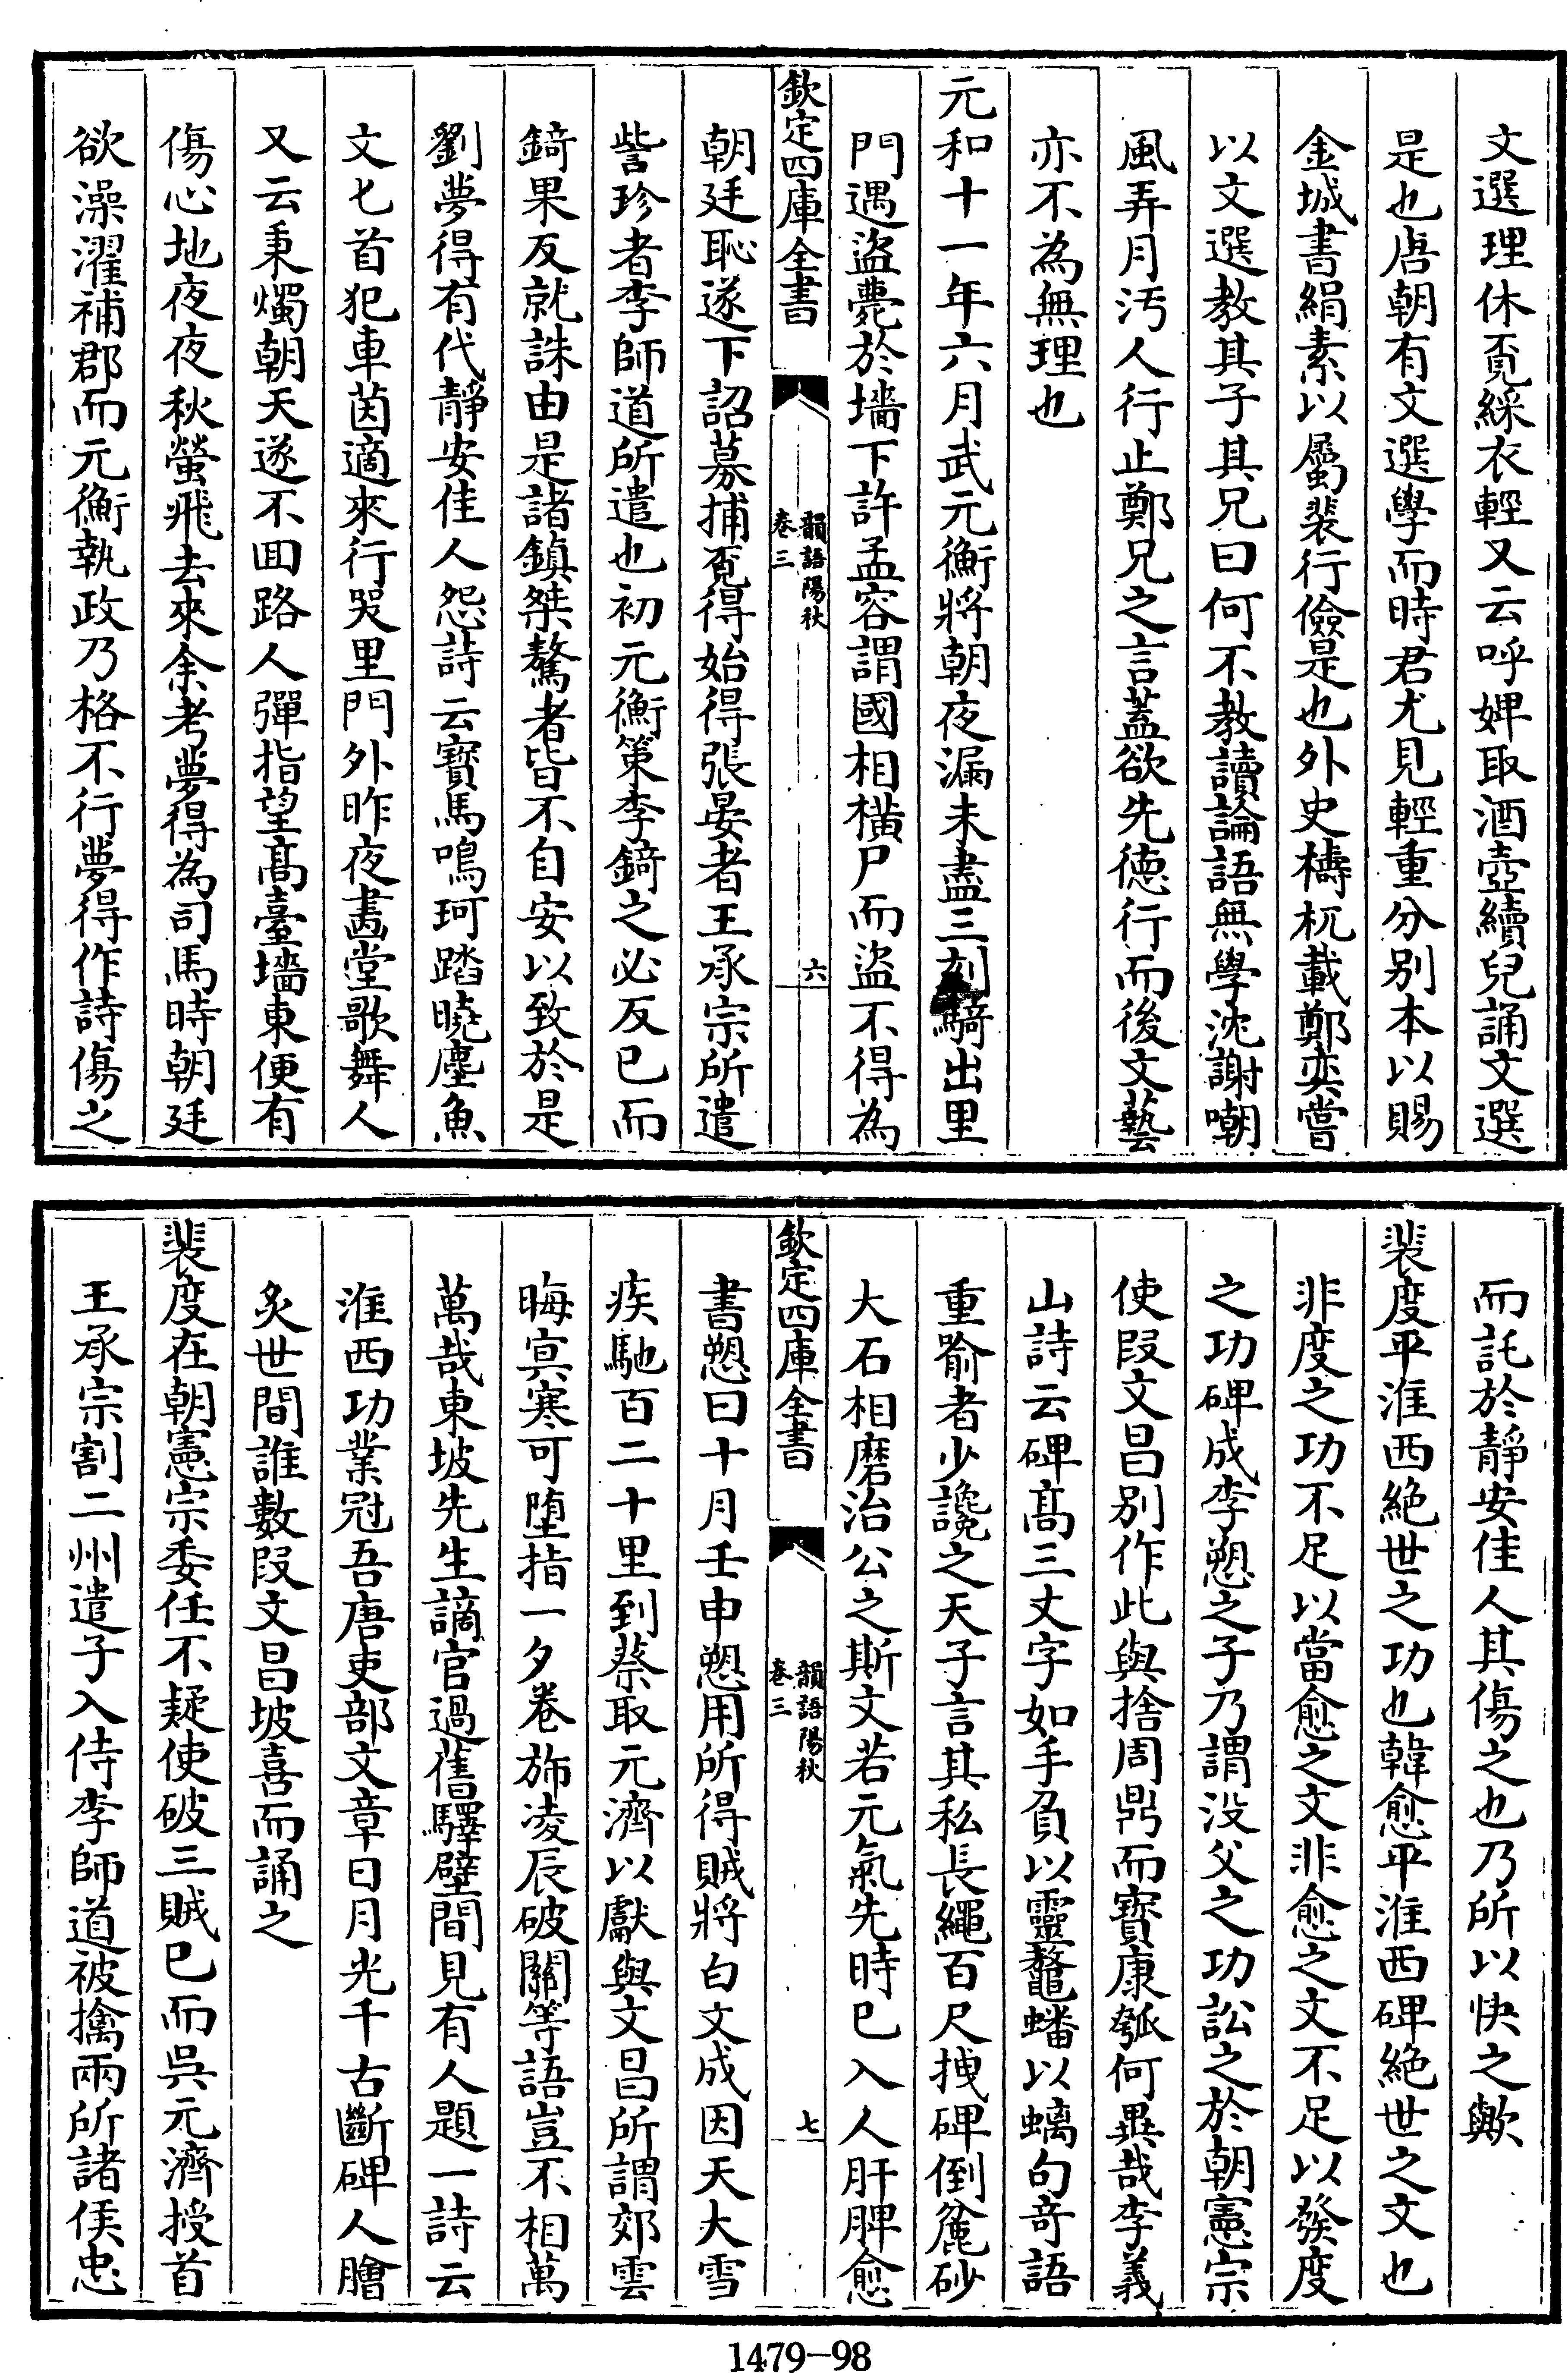 文選理休覔綵衣輕又云呼婢取酒壺續兒誦文選
是也唐朝有文選學而時君尤見輕重分别本以賜
金城書絹素以屬裴行儉是也外史檮杌載鄭奕嘗
以文選教其子其兄曰何不教讀論語無學沈謝嘲
風弄月汚人行止鄭兄之言蓋欲先德行而後文藝
亦不為無理也
元和十一年六月武元衡將朝夜漏未盡三刻騎出里
門遇盜薨於墻下許孟容謂國相橫尸而盜不得為
欽定四庫全書
韻語陽秋
卷三
六
朝廷恥遂下詔募捕覔得始得張晏者王承宗所遣
訾珍者李師道所遣也初元衡策李錡之必反已而
錡果反就誅由是諸鎮桀驁者皆不自安以致於是
劉夢得有代靜安佳人怨詩云寳馬鳴珂踏曉塵魚
文匕首犯車茵適來行哭里門外昨夜畫堂歌舞人
又云秉燭朝天遂不囬路人彈指望髙臺墻東便有
傷心地夜夜秋螢飛去來余考夢得為司馬時朝廷
欲澡濯補郡而元衡執政乃格不行夢得作詩傷之
而託於靜安佳人其傷之也乃所以快之歟
裴度平淮西絶世之功也韓愈平淮西碑絶世之文也
非度之功不足以當愈之文非愈之文不足以發度
之功碑成李愬之子乃謂没父之功訟之於朝憲宗
使叚文昌别作此與捨周鼎而寳康瓠何異哉李義
山詩云碑髙三丈字如手負以靈鼇蟠以螭句竒語
重喻者少讒之天子言其私長繩百尺拽碑倒麄砂
大石相磨治公之斯文若元氣先時已入人肝脾愈
欽定四庫全書
韻語陽秋
卷三
七
書愬曰十月壬申愬用所得賊將白文成因天大雪
疾馳百二十里到蔡取元濟以獻與文昌所謂郊雲
晦㝠寒可墮指一夕卷斾凌辰破關等語豈不相萬
萬哉東坡先生謫官過舊驛壁間見有人題一詩云
淮西功業冠吾唐吏部文章日月光千古斷碑人膾
炙世間誰數叚文昌坡喜而誦之
裴度在朝憲宗委任不疑使破三賊已而吳元濟授首
王承宗割二州遣子入侍李師道被擒兩所諸侯忠
1479-98